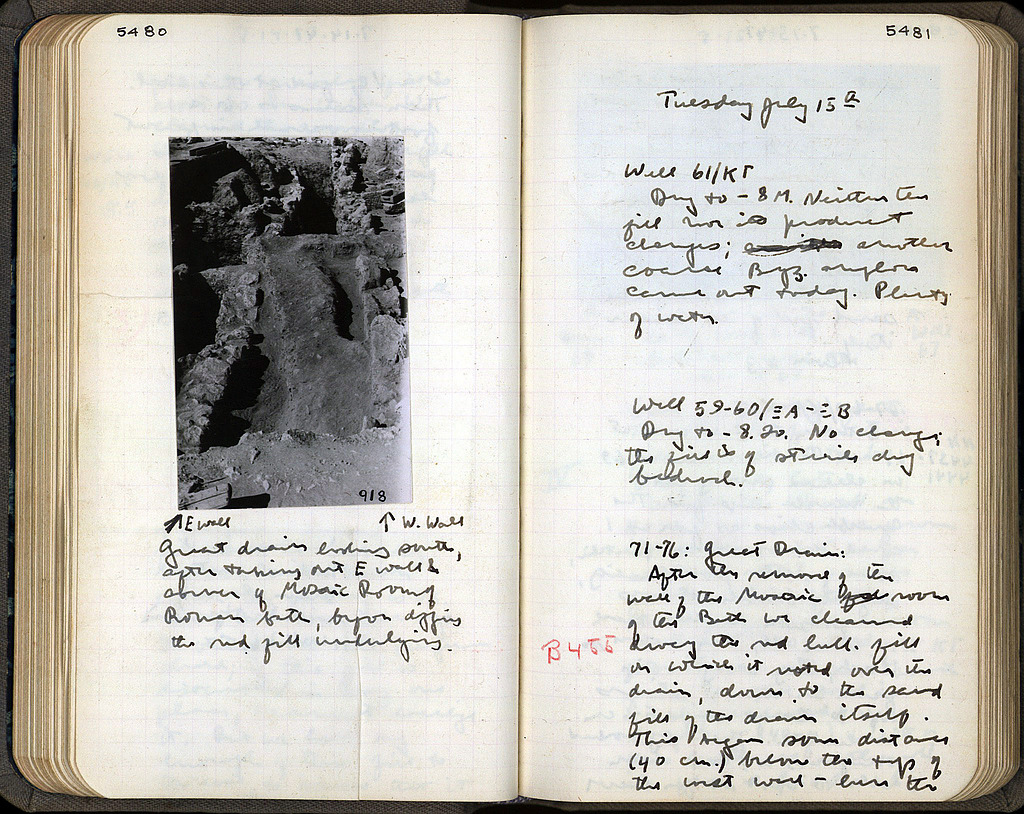 5480
918
↑ E wall ↑ W. Wall
Great drain looking south,
after taking out E wall &
corner of Mosaic Room of
Roman bath, before digging
the red fill underlying.
5481
Tuesday July 15th
Well 61/ΚΓ
Dug to - 8 M. Neither the
fill nor its product
changes; another
coarse Byz. amphora
came out today. Plenty
of water.
Well 59-60/ΞΑ-ΞΒ
Dug to - 8.20. No change;
the fill is of sterile dug
bedrock.
71-76: Great Drain:
After the removal of the
wall of the Mosaic room
of the Bath we cleaned
B 455 away the red fill
on which it rested over the
drain, down to the sand
fill of the drain itself.
This began some distance
(40 cm.) below the top of
the west wall - here the